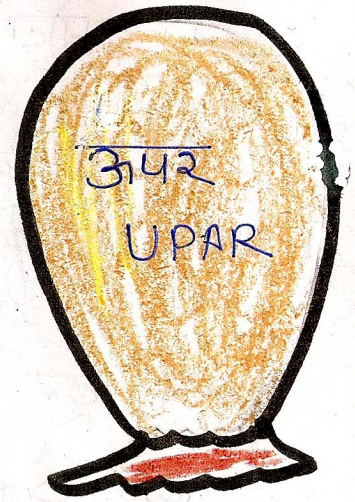 ऊपर
UPAR